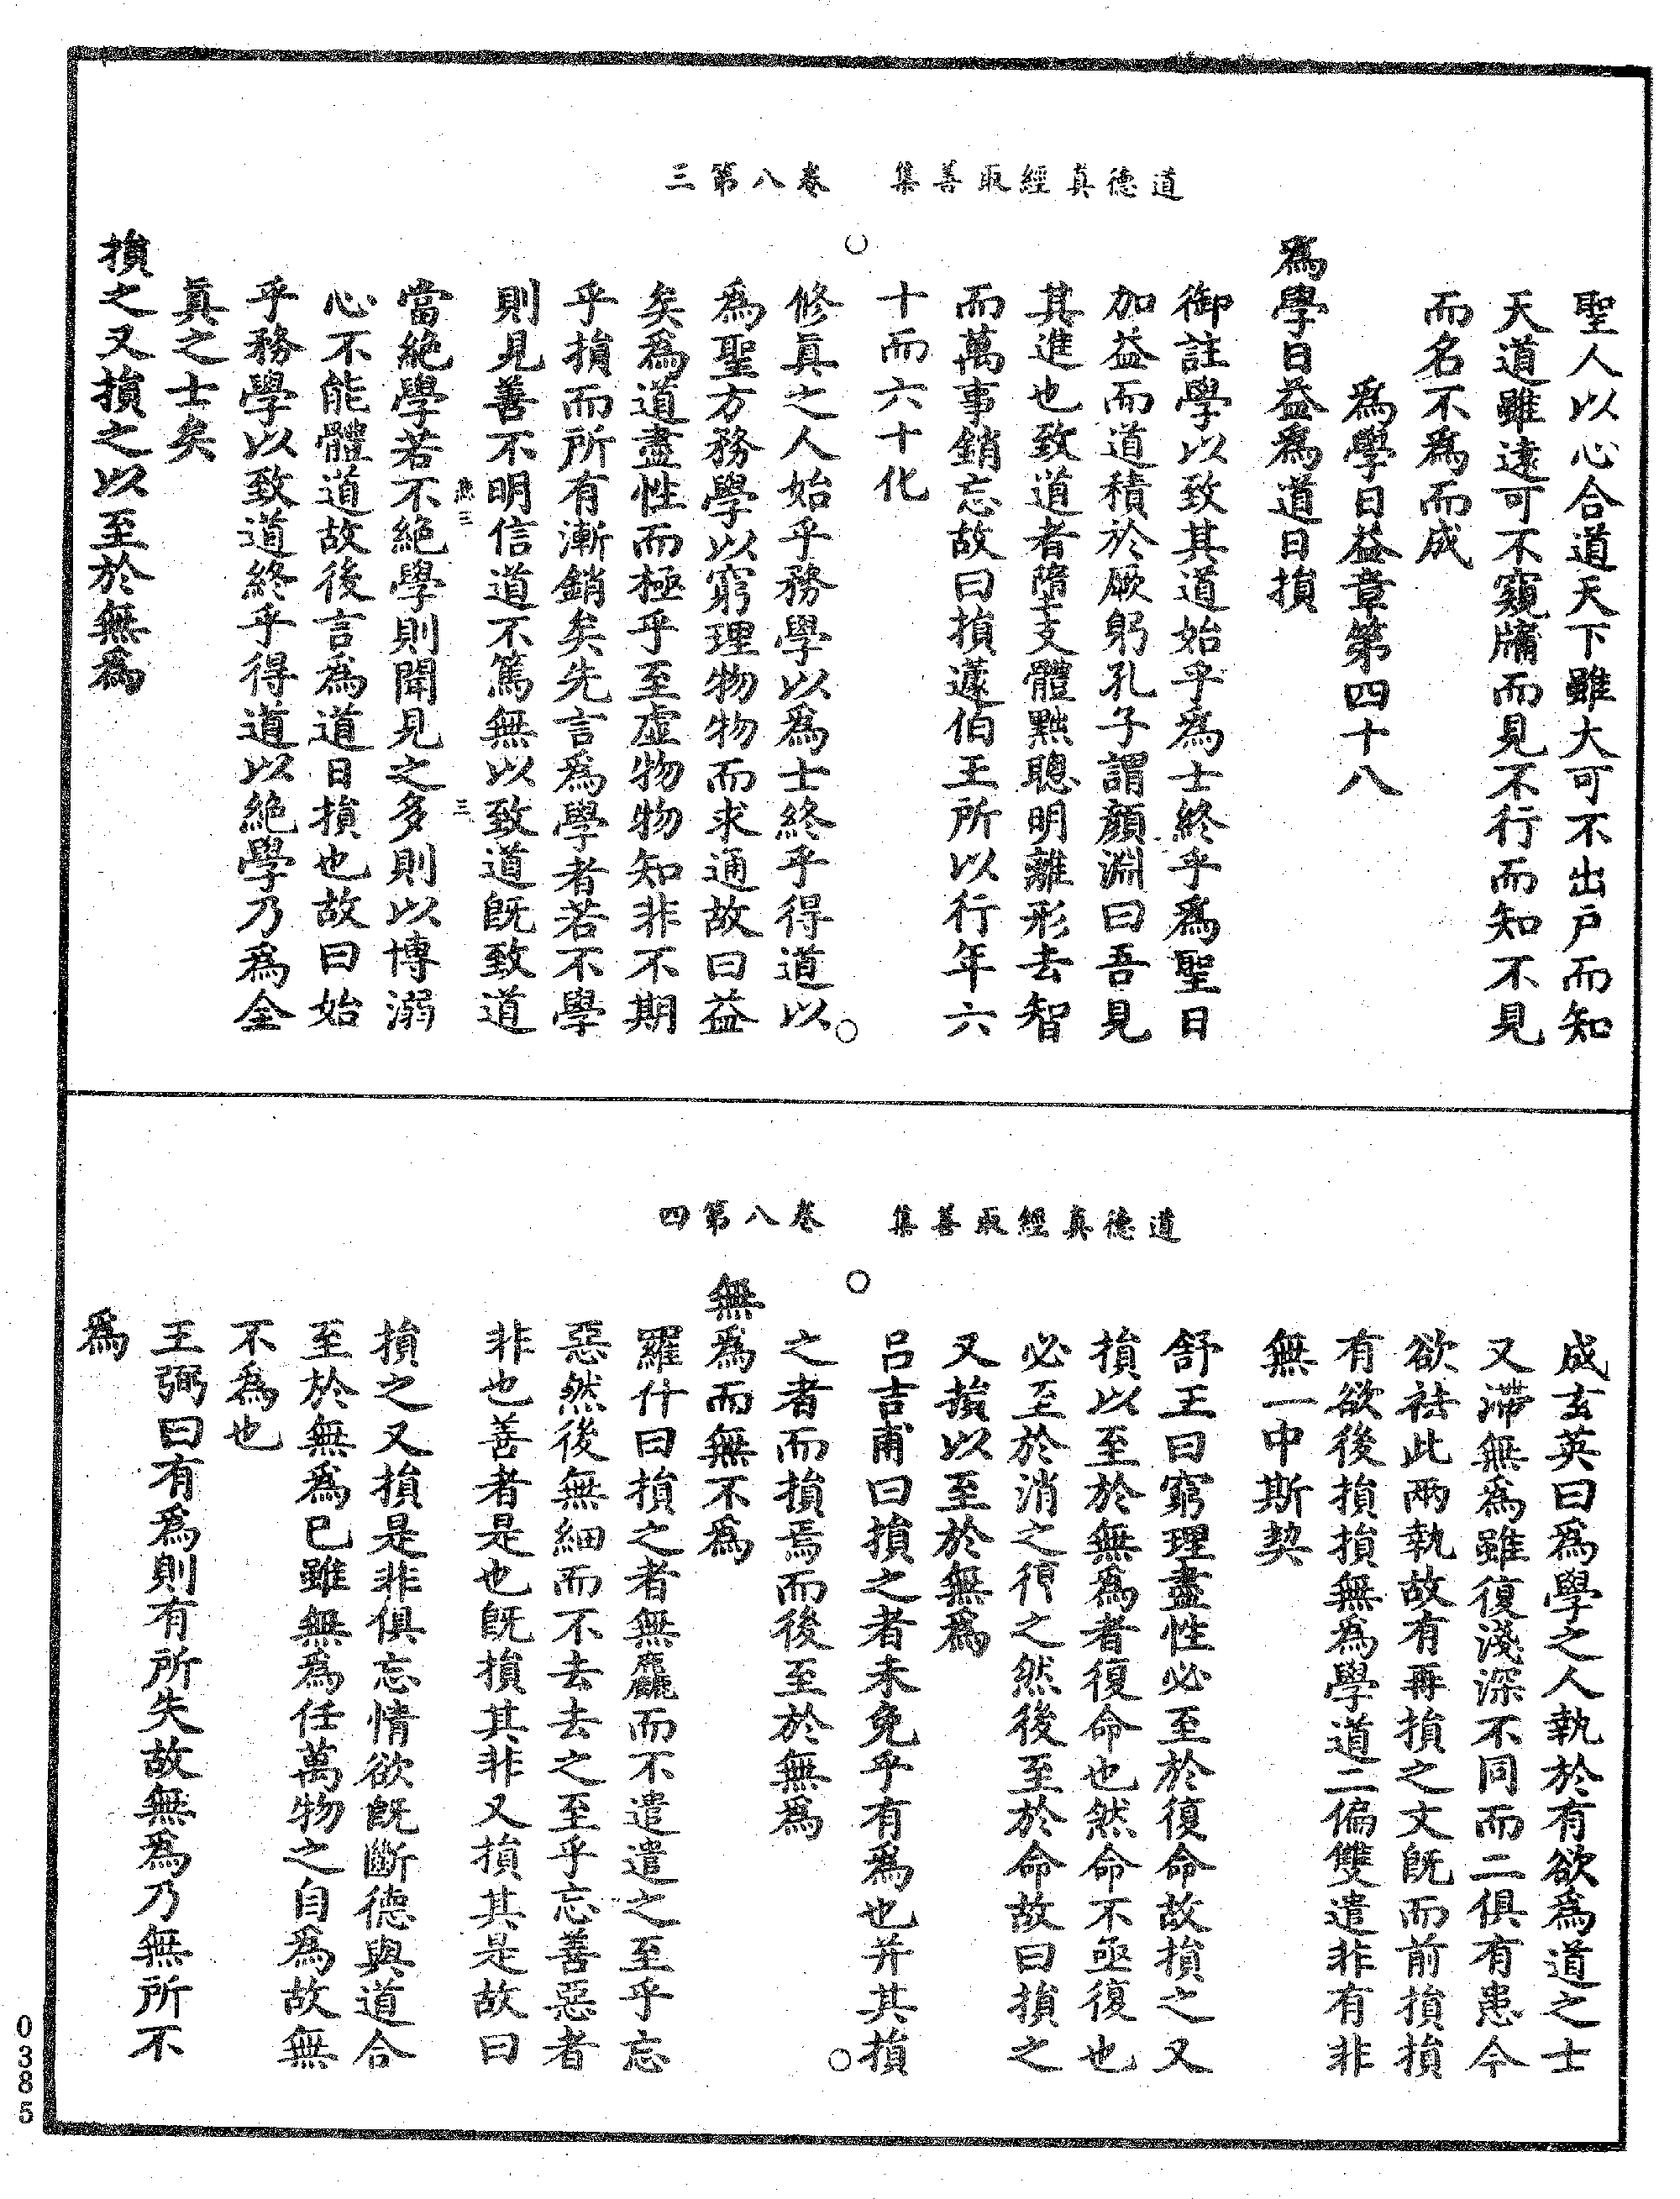 道德真經取善集　卷八第三
聖人以心合道天下雖大可不出户而知
天道雖遠可不窺牖而見不行而知不見
而名不為而成
為學日益章第四十八
為學日益為道日損
御註學以致其道始乎為士終乎為聖日
加益而道積於厥躬孔子謂顔淵曰吾見
其進也致道者隳支體黜聰明離形去智
而萬事銷忘故曰損蘧伯玉所以行年六
十而六十化
修真之人始乎務學以為士終乎得道以
為聖方務學以窮理物物而求通故曰益
矣為道盡性而極乎至虛物物知非不期
乎損而所有漸銷矣先言為學者若不學
則見善不明信道不篤無以致道既致道
三
當絶學若不絶學則聞見之多則以博溺
心不能體道故後言為道日損也故曰始
乎務學以致道終乎得道以絶學乃為全
真之士矣
損之又損之以至於無為
道德真經取善集　卷八第四
成玄英曰為學之人執於有欲為道之士
又滯無為雖復淺深不同而二俱有患今
欲祛此兩執故有再損之文既而前損損
有欲後損損無為學道二偏雙遣非有非
無一中斯契
舒王曰窮理盡性必至於復命故損之又
損以至於無為者復命也然命不亟復也
必至於消之復之然後至於命故曰損之
又損以至於無為
吕吉甫曰損之者未免乎有為也并其損
之者而損焉而後至於無為
無為而無不為
羅什曰損之者無麤而不遣遣之至乎忘
惡然後無細而不去去之至乎忘善惡者
非也善者是也既損其非又損其是故曰
損之又損是非俱忘情欲既斷德與道合
至於無為已雖無為任萬物之自為故無
不為也
王弼曰有為則有所失故無為乃無所不
為
0385